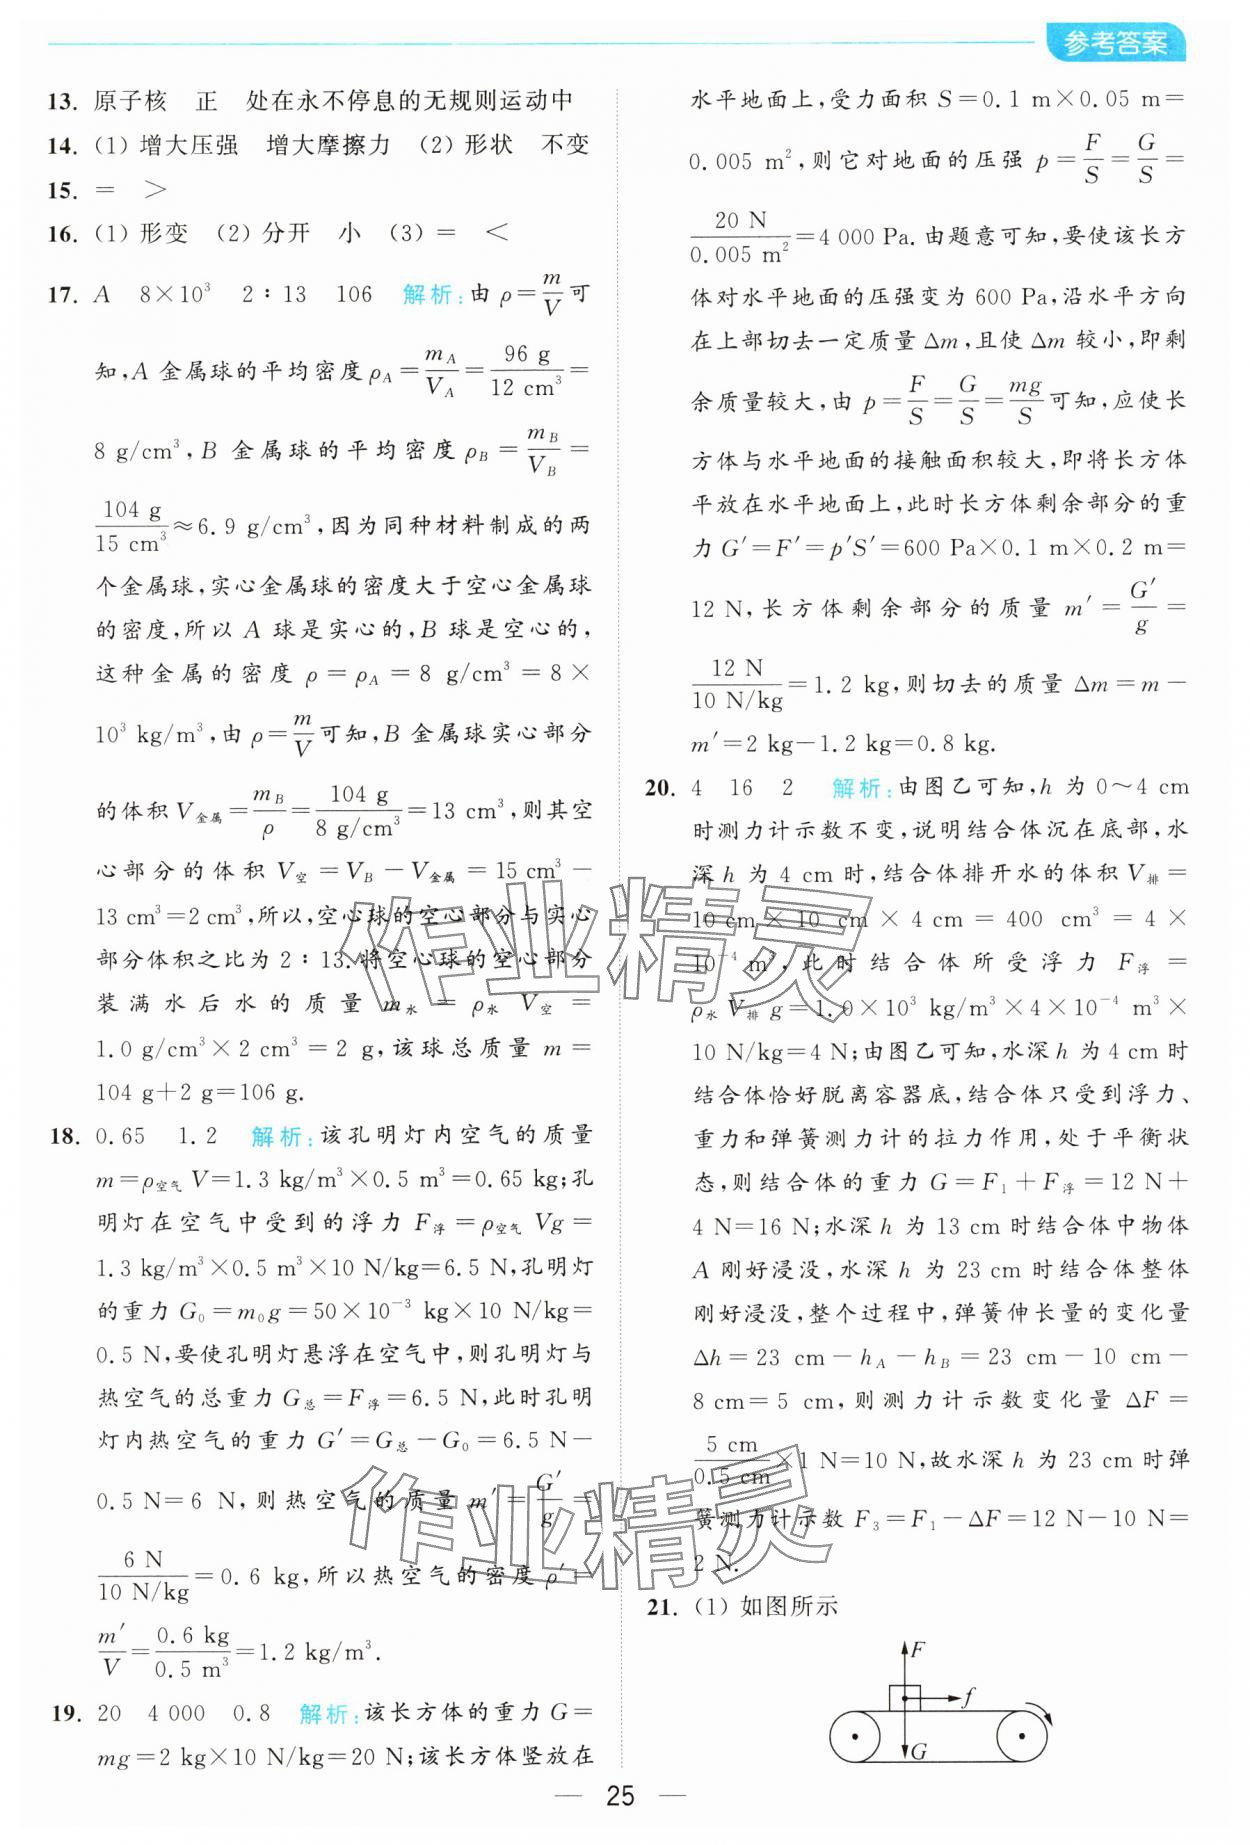 参考答案
13. 原子核　正　处在永不停息的无规则运动中
14. (1)增大压强　增大摩擦力　(2)形状　不变
15. =　>
16. (1)形变　(2)分开　小　(3)=　<
17. A　8×10³　2∶13　106　解析:由 ρ=m/V可
知,A 金属球的平均密度 ρA=mA/VA=96 g/12 cm³=
8 g/cm³,B 金属球的平均密度 ρB=mB/VB=
104 g/15 cm³≈6.9 g/cm³,因为同种材料制成的两
个金属球,实心金属球的密度大于空心金属球
的密度,所以 A 球是实心的,B 球是空心的,
这种金属的密度 ρ=ρA=8 g/cm³=8×
10³ kg/m³,由 ρ=m/V可知,B 金属球实心部分
的体积 V金属=mB/ρ=104 g/8 g/cm³=13 cm³,则其空
心部分的体积 V空=VB-V金属=15 cm³-
13 cm³=2 cm³,所以,空心球的空心部分与实心
部分体积之比为 2∶13.将空心球的空心部分
装满水后水的质量 m水=ρ水 V空=
1.0 g/cm³×2 cm³=2 g,该球总质量 m=
104 g+2 g=106 g.
18. 0.65　1.2　解析:该孔明灯内空气的质量
m=ρ空气 V=1.3 kg/m³×0.5 m³=0.65 kg;孔
明灯在空气中受到的浮力 F浮=ρ空气 Vg=
1.3 kg/m³×0.5 m³×10 N/kg=6.5 N,孔明灯
的重力 G₀=m₀g=50×10⁻³ kg×10 N/kg=
0.5 N,要使孔明灯悬浮在空气中,则孔明灯与
热空气的总重力 G总=F浮=6.5 N,此时孔明
灯内热空气的重力 G′=G总-G₀=6.5 N-
0.5 N=6 N,则热空气的质量 m′=G′/g=
6 N/10 N/kg=0.6 kg,所以热空气的密度 ρ′=
m′/V=0.6 kg/0.5 m³=1.2 kg/m³.
19. 20　4 000　0.8　解析:该长方体的重力 G=
mg=2 kg×10 N/kg=20 N;该长方体竖放在
水平地面上,受力面积 S=0.1 m×0.05 m=
0.005 m²,则它对地面的压强 p=F/S=G/S=
20 N/0.005 m²=4 000 Pa.由题意可知,要使该长方
体对水平地面的压强变为 600 Pa,沿水平方向
在上部切去一定质量 Δm,且使 Δm 较小,即剩
余质量较大,由 p=F/S=G/S=mg/S可知,应使长
方体与水平地面的接触面积较大,即将长方体
平放在水平地面上,此时长方体剩余部分的重
力 G′=F′=p′S′=600 Pa×0.1 m×0.2 m=
12 N,长方体剩余部分的质量 m′=G′/g=
12 N/10 N/kg=1.2 kg,则切去的质量 Δm=m-
m′=2 kg-1.2 kg=0.8 kg.
20. 4　16　2　解析:由图乙可知,h 为 0～4 cm
时测力计示数不变,说明结合体沉在底部,水
深 h 为 4 cm 时,结合体排开水的体积 V排=
10 cm×10 cm×4 cm=400 cm³=4×
10⁻⁴ m³,此时结合体所受浮力 F浮=
ρ水 V排 g=1.0×10³ kg/m³×4×10⁻⁴ m³×
10 N/kg=4 N;由图乙可知,水深 h 为 4 cm 时
结合体恰好脱离容器底,结合体只受到浮力、
重力和弹簧测力计的拉力作用,处于平衡状
态,则结合体的重力 G=F₁+F浮=12 N+
4 N=16 N;水深 h 为 13 cm 时结合体中物体
A 刚好浸没,水深 h 为 23 cm 时结合体整体
刚好浸没,整个过程中,弹簧伸长量的变化量
Δh=23 cm-hA-hB=23 cm-10 cm-
8 cm=5 cm,则测力计示数变化量 ΔF=
5 cm/0.5 cm×1 N=10 N,故水深 h 为 23 cm 时弹
簧测力计示数 F₃=F₁-ΔF=12 N-10 N=
2 N.
21. (1)如图所示
F
f
G
25
作业精灵
作业精灵